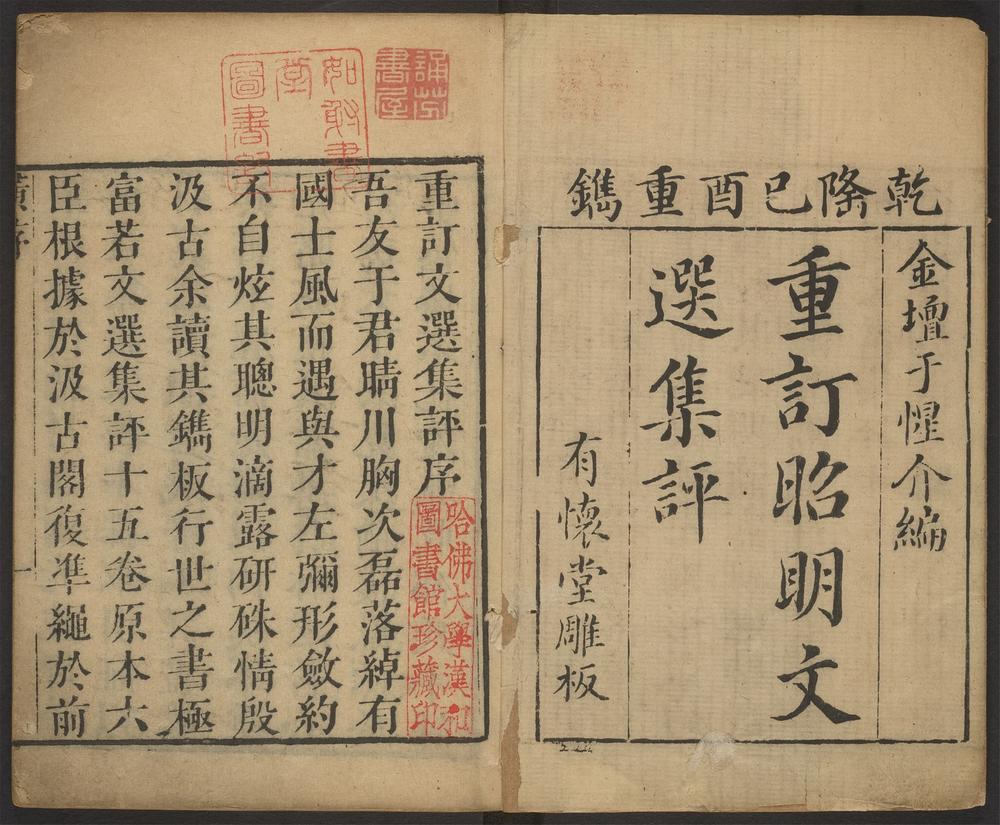 乾隆己酉重鐫
金壇于惺介編
重訂昭明文
選集評
有懷堂雕板
誦芬
書屋
如
堂
圖書
重訂文選集評序
哈佛大學漢和
圖書館珍藏印
吾友于君晴川胸次磊落綽有
國士風而遇與才左彌形斂約
不自炫其聰明滴露研硃情殷
汲古余讀其鐫板行世之書極
富若文選集評十五卷原本六
臣根據於汲古閣復準繩於前
序
一